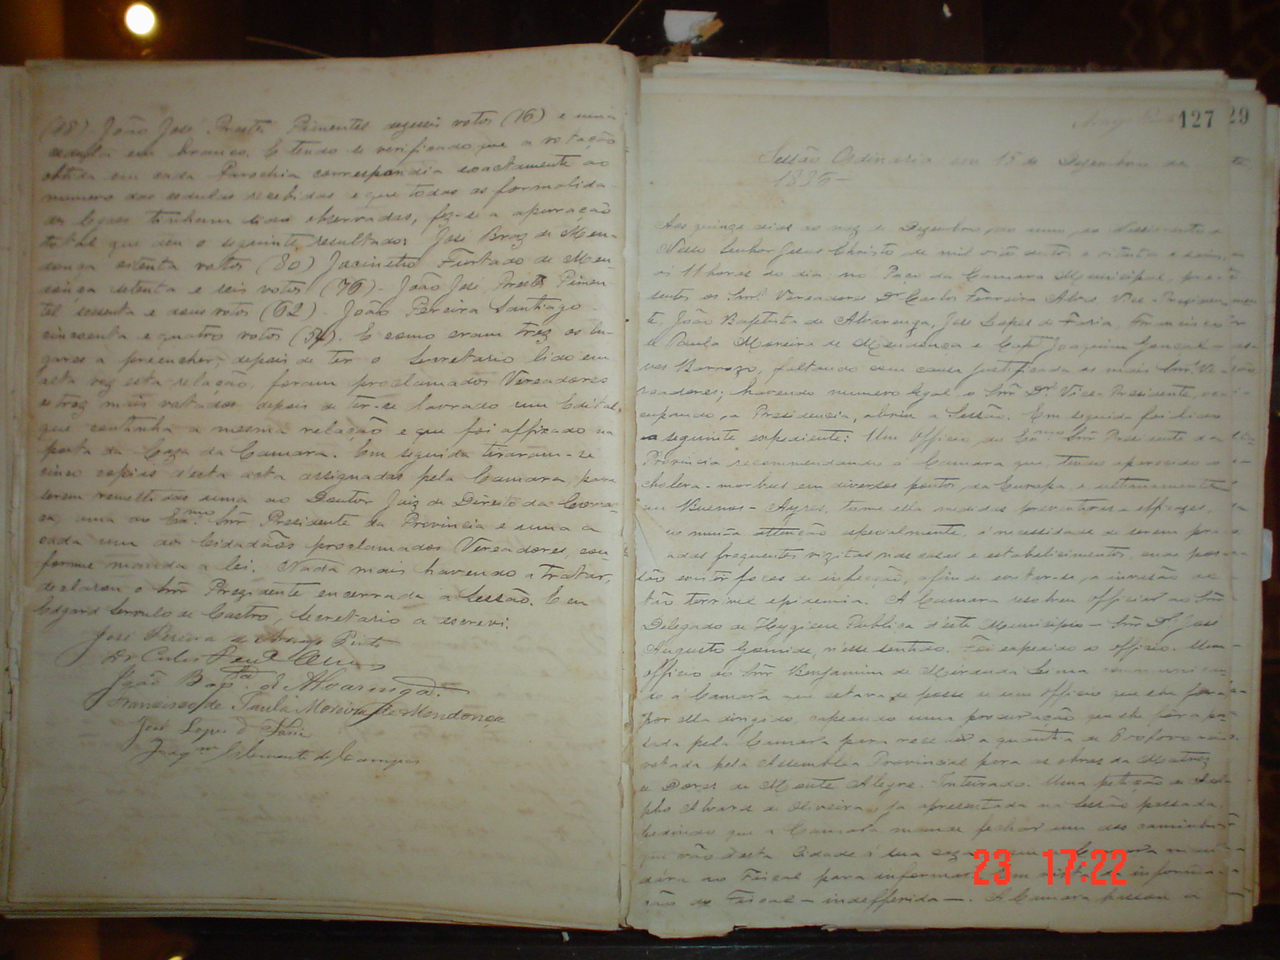 (48). João José Prestes Pimentel desesseis votos (16) e uma
cedula em branco. E tendo se verificado que a votação
obtida em cada Parochia correspondia exactamente ao
numero das cedulas recebidas e que todas as formalida-
des legaes tinham sido observadas, fez-se a apuração
total que deu o seguinte resultado: José Braz de Men-
donça oitenta votos (80) Jacintho Furtado de Men-
donça setenta e seis votos (76). João José Prestes Pimen-
tel sessenta e dous votos (62). João Pereira Santiago
cincoenta e quatro votos (54). E como eram trez os lu-
gares a preencher, depois de ter o Secretario lido em
alta voz esta relação, foram proclamados Vereadores
os trez mais votados depois de ter-se lavrado um Edital,
que continha a mesma relação e que foi affixado na
porta da Caza da Camara. Em seguida tiraram-se
cinco copias d'esta acta assignadas pela Camara para
serem remettidas uma ao Doutor Juiz de Direito da Comar-
ca, uma ao Exmo. Snr. Presidente da Provincia e uma a
cada um dos Cidadãos proclamados Vereadores, con-
forme manda a lei. Nada mais havendo a tratar,
declarou o Snr. Prezidente encerrada a Sessão. E eu
Edgard de Castro, Secretario a escrevi.
José Pereira de Araujo Pinto
Dr. Carlos Ferra Alves
João Bapta. de Alvarenga.
Francisco de Paula Moreira de Mendonça
José Lopes de Faria
Joaqm. Clemente de Campos
127 29
Sessão Ordinaria em 15 de Dezembro de
1886-
Aos quinze dias do mez de Dezembro do anno do Nascimento de
Nosso Senhor Jesus Christo de mil oito centos e oitenta e seis,
as 11 horas do dia no Paço da Camara Municipal, pre-
sentes os Snrs. Vereadores Dr. Carlos Ferreira Alves Vice-Presiden-
te, João Baptista de Alvarenga, José Lopes de Faria, Francisco
de Paula Moreira de Mendonça e Capm. Joaquim Gonçal-
ves Barrozo, faltando sem causa justificada os mais Snrs. Ve-
readores; havendo numero legal, o Snr. Dr. Vice-Presidente, oc-
cupando a Presidencia, abriu a Sessão. Em seguida foi lido
o seguinte expediente: Um Officio do Exmo. Snr. Presidente da
Provincia recommendando á Camara que, tendo apparecido o
cholera-morbus em diversos pontos da Europa e ultimamente
em Buenos-Ayres, tome ella medidas preventivas e efficazes,
muita attenção especialmente, á necessidade de serem pra-
ticadas frequentes vizitas nas casas e estabelecimentos, onde pos-
são existir focos de infecção, afim de evitar-se a invasão de
tão terrivel epidemia. A Camara resolveu officiar ao Snr.
Delegado de Hygiene Publica d'este Municipio - Snr. Dr. José
Augusto Gomide, n'esse sentido. Foi expedido o officio. Um
officio do Snr. Benjamim de Miranda Lima communican-
do á Camara que estava de posse de um officio que lhe fora
por ella dirigido, copeando uma procuração que lhe fôra pas-
sada pela Camara para receber a quantia de
votada pela Assemblea Provincial para as obras da Matriz
de Dores do Monte Alegre. Inteirado. Uma petição de Adol-
pho Alvares de Oliveira, ja apresentada na Sessão passada,
pedindo que a Camara mande fechar um dos caminhos
que vão desta Cidade á sua
dára ao Fiscal para informar em vista da informa-
ção do Fiscal - indefferida -. A Camara passou a
23 17:22